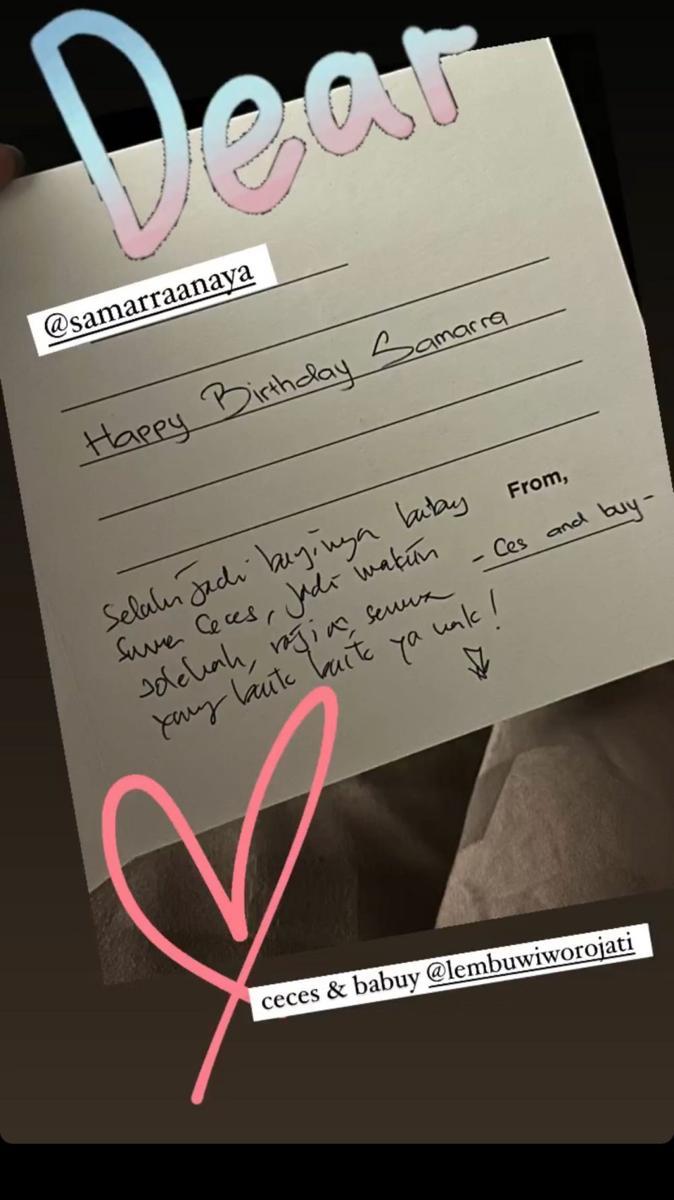 Dear
@samarraanaya
Happy Birthday Samarra
From,
- Ces and buy -
Selalu jadi buyinya babuy
sama Ceces, jadi makin
solehah, rajin, semua
yang baik baik ya nak!
ceces & babuy @lembuwiworojati